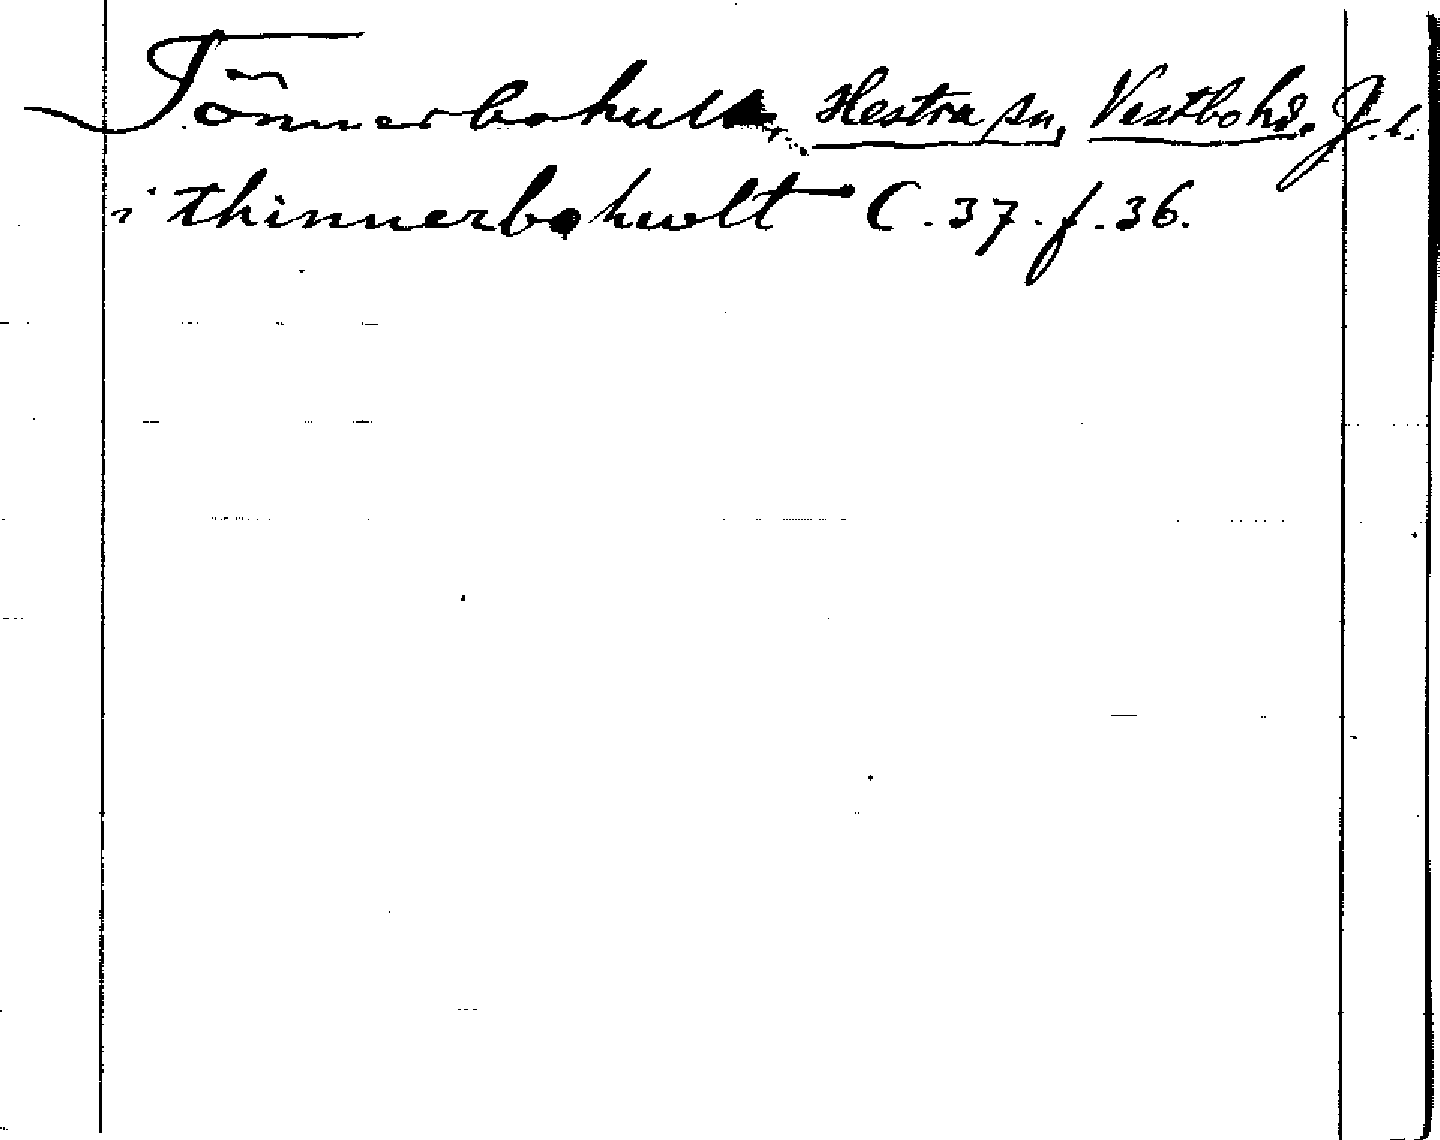 Tönnerbohult Hestra sn, Vestbo hd. J.l.
i thinnerbohwlt C. 37. f. 36.